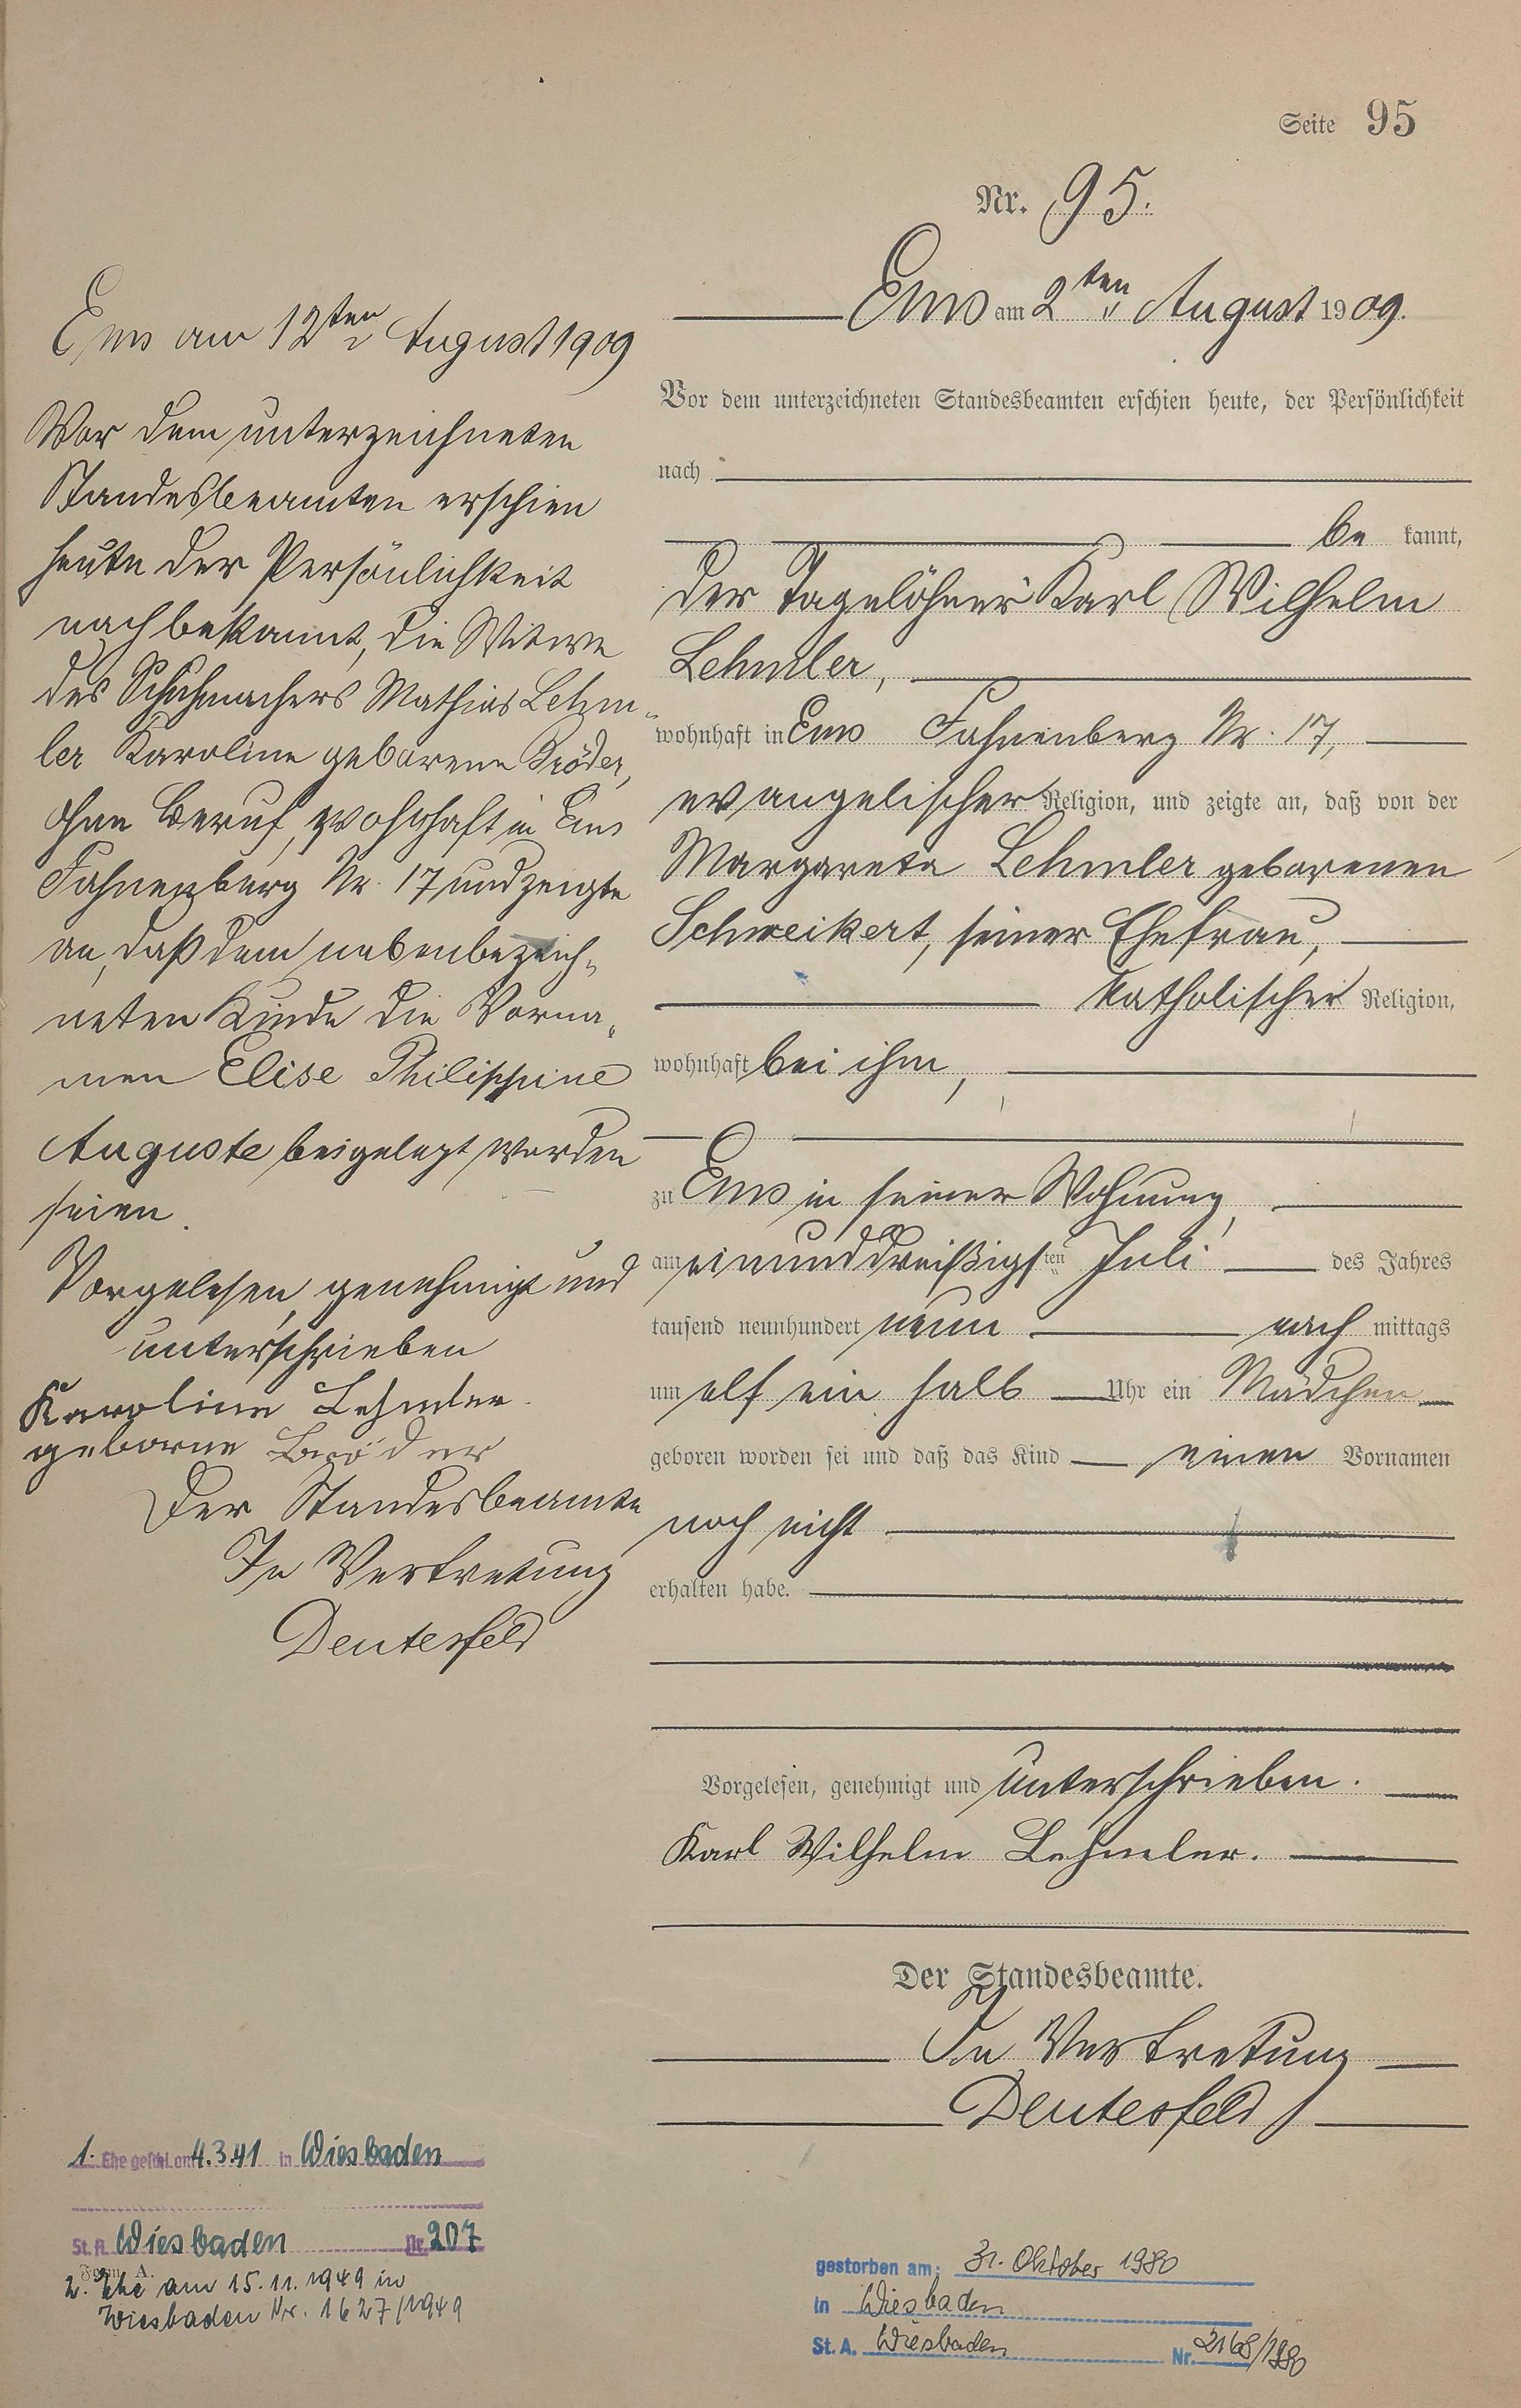 Seite 95
Nr. 95.
Ems am 2ten August 1909.
Vor dem unterzeichneten Standesbeamten erschien heute, der Persönlichkeit
nach
be kannt,
der Tagelöhner Karl Wilhelm
Lehmler,
wohnhaft in Ems Fahnenberg Nr. 17,
evangelischer Religion, und zeigte an, daß von der
Margareta Lehmler geborenen
Schweikert, seiner Ehefrau,
katholischer Religion,
wohnhaft bei ihm,
zu Ems in seiner Wohnung,
am einunddreißigsten Juli des Jahres
tausend neunhundert neun nach mittags
um elf ein halb Uhr ein Mädchen
geboren worden sei und daß das Kind einen Vornamen
noch nicht
erhalten habe.
Vorgelesen, genehmigt und unterschrieben.
Karl Wilhelm Lehmler.
Der Standesbeamte.
In Vertretung
Deutesfeld
Ems am 12ten August 1909
Vor dem unterzeichneten
Standesbeamten erschien
heute der Persönlichkeit
nach bekannt, die Witwe
des Schuhmachers Mathias Lehm-
ler Karoline geborene Bröder,
ohne Beruf, wohnhaft in Ems
Fahnenberg Nr. 17 und zeigte
an, daß dem nebenbezeich-
neten Kinde die Vorna-
men Elise Philippine
Auguste beigelegt worden
seien.
Vorgelesen, genehmigt und
unterschrieben
Karoline Lehmler
geborne Bröder
Der Standesbeamte
In Vertretung
Deutesfeld
1. Ehe geschl. am 4.3.41 in Wiesbaden
St. A. Wiesbaden Nr. 207
Form A.
2. Ehe am 15.11.1949 in
Wiesbaden Nr. 1627/1949
gestorben am: 31. Oktober 1980
in Wiesbaden
St. A. Wiesbaden Nr. 2168/1980